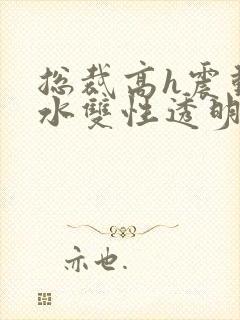 总裁高h震
水雙性透明
亦也.